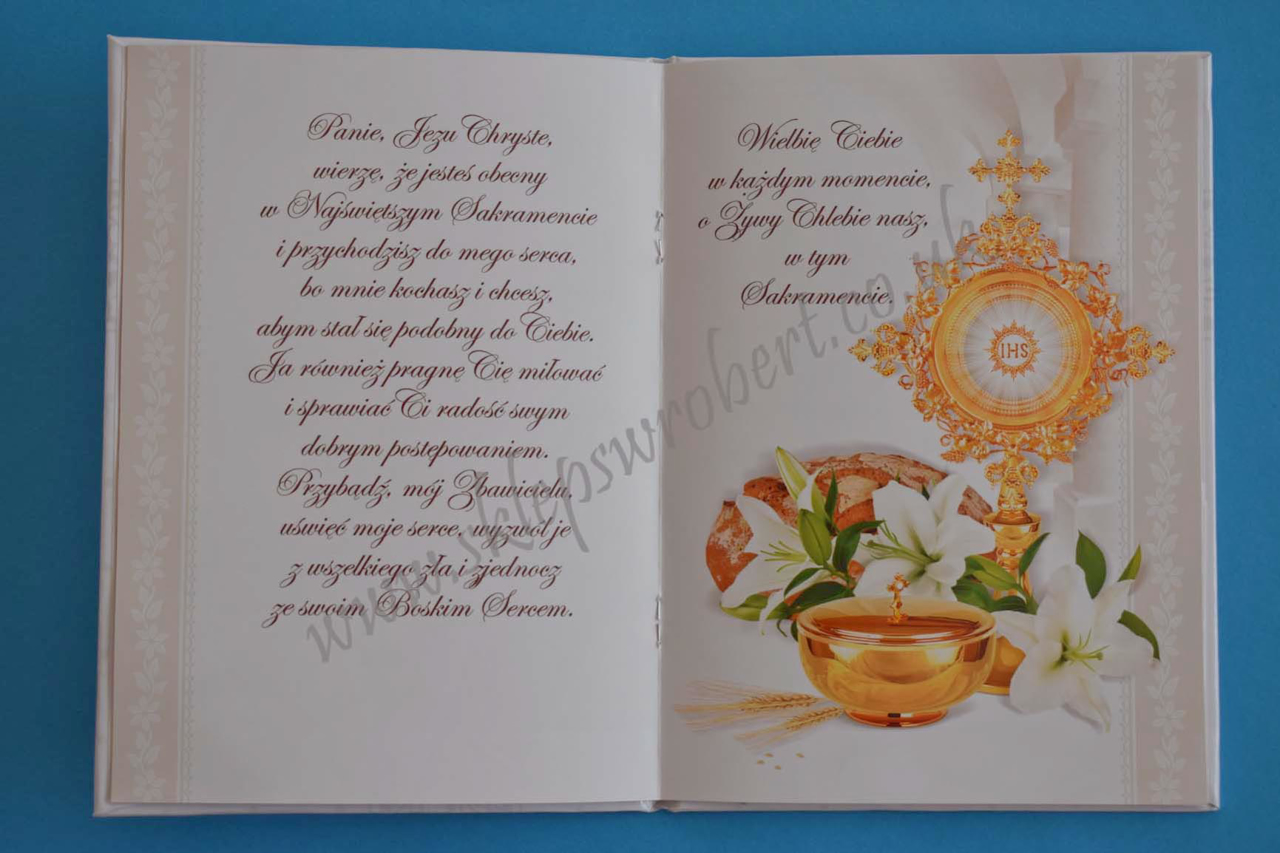 Panie, Jezu Chryste,
wierzę, że jesteś obecny
w Najświętszym Sakramencie
i przychodzisz do mego serca,
bo mnie kochasz i chcesz,
abym stał się podobny do Ciebie.
Ja również pragnę Cię miłować
i sprawiać Ci radość swym
dobrym postępowaniem.
Przybądź, mój Zbawicielu,
uświęć moje serce, wyzwól je
z wszelkiego zła i zjednocz
ze swoim Boskim Sercem.
Wielbię Ciebie
w każdym momencie,
o Żywy Chlebie nasz,
w tym
Sakramencie.
IHS
www.sklepswrobert.co.uk